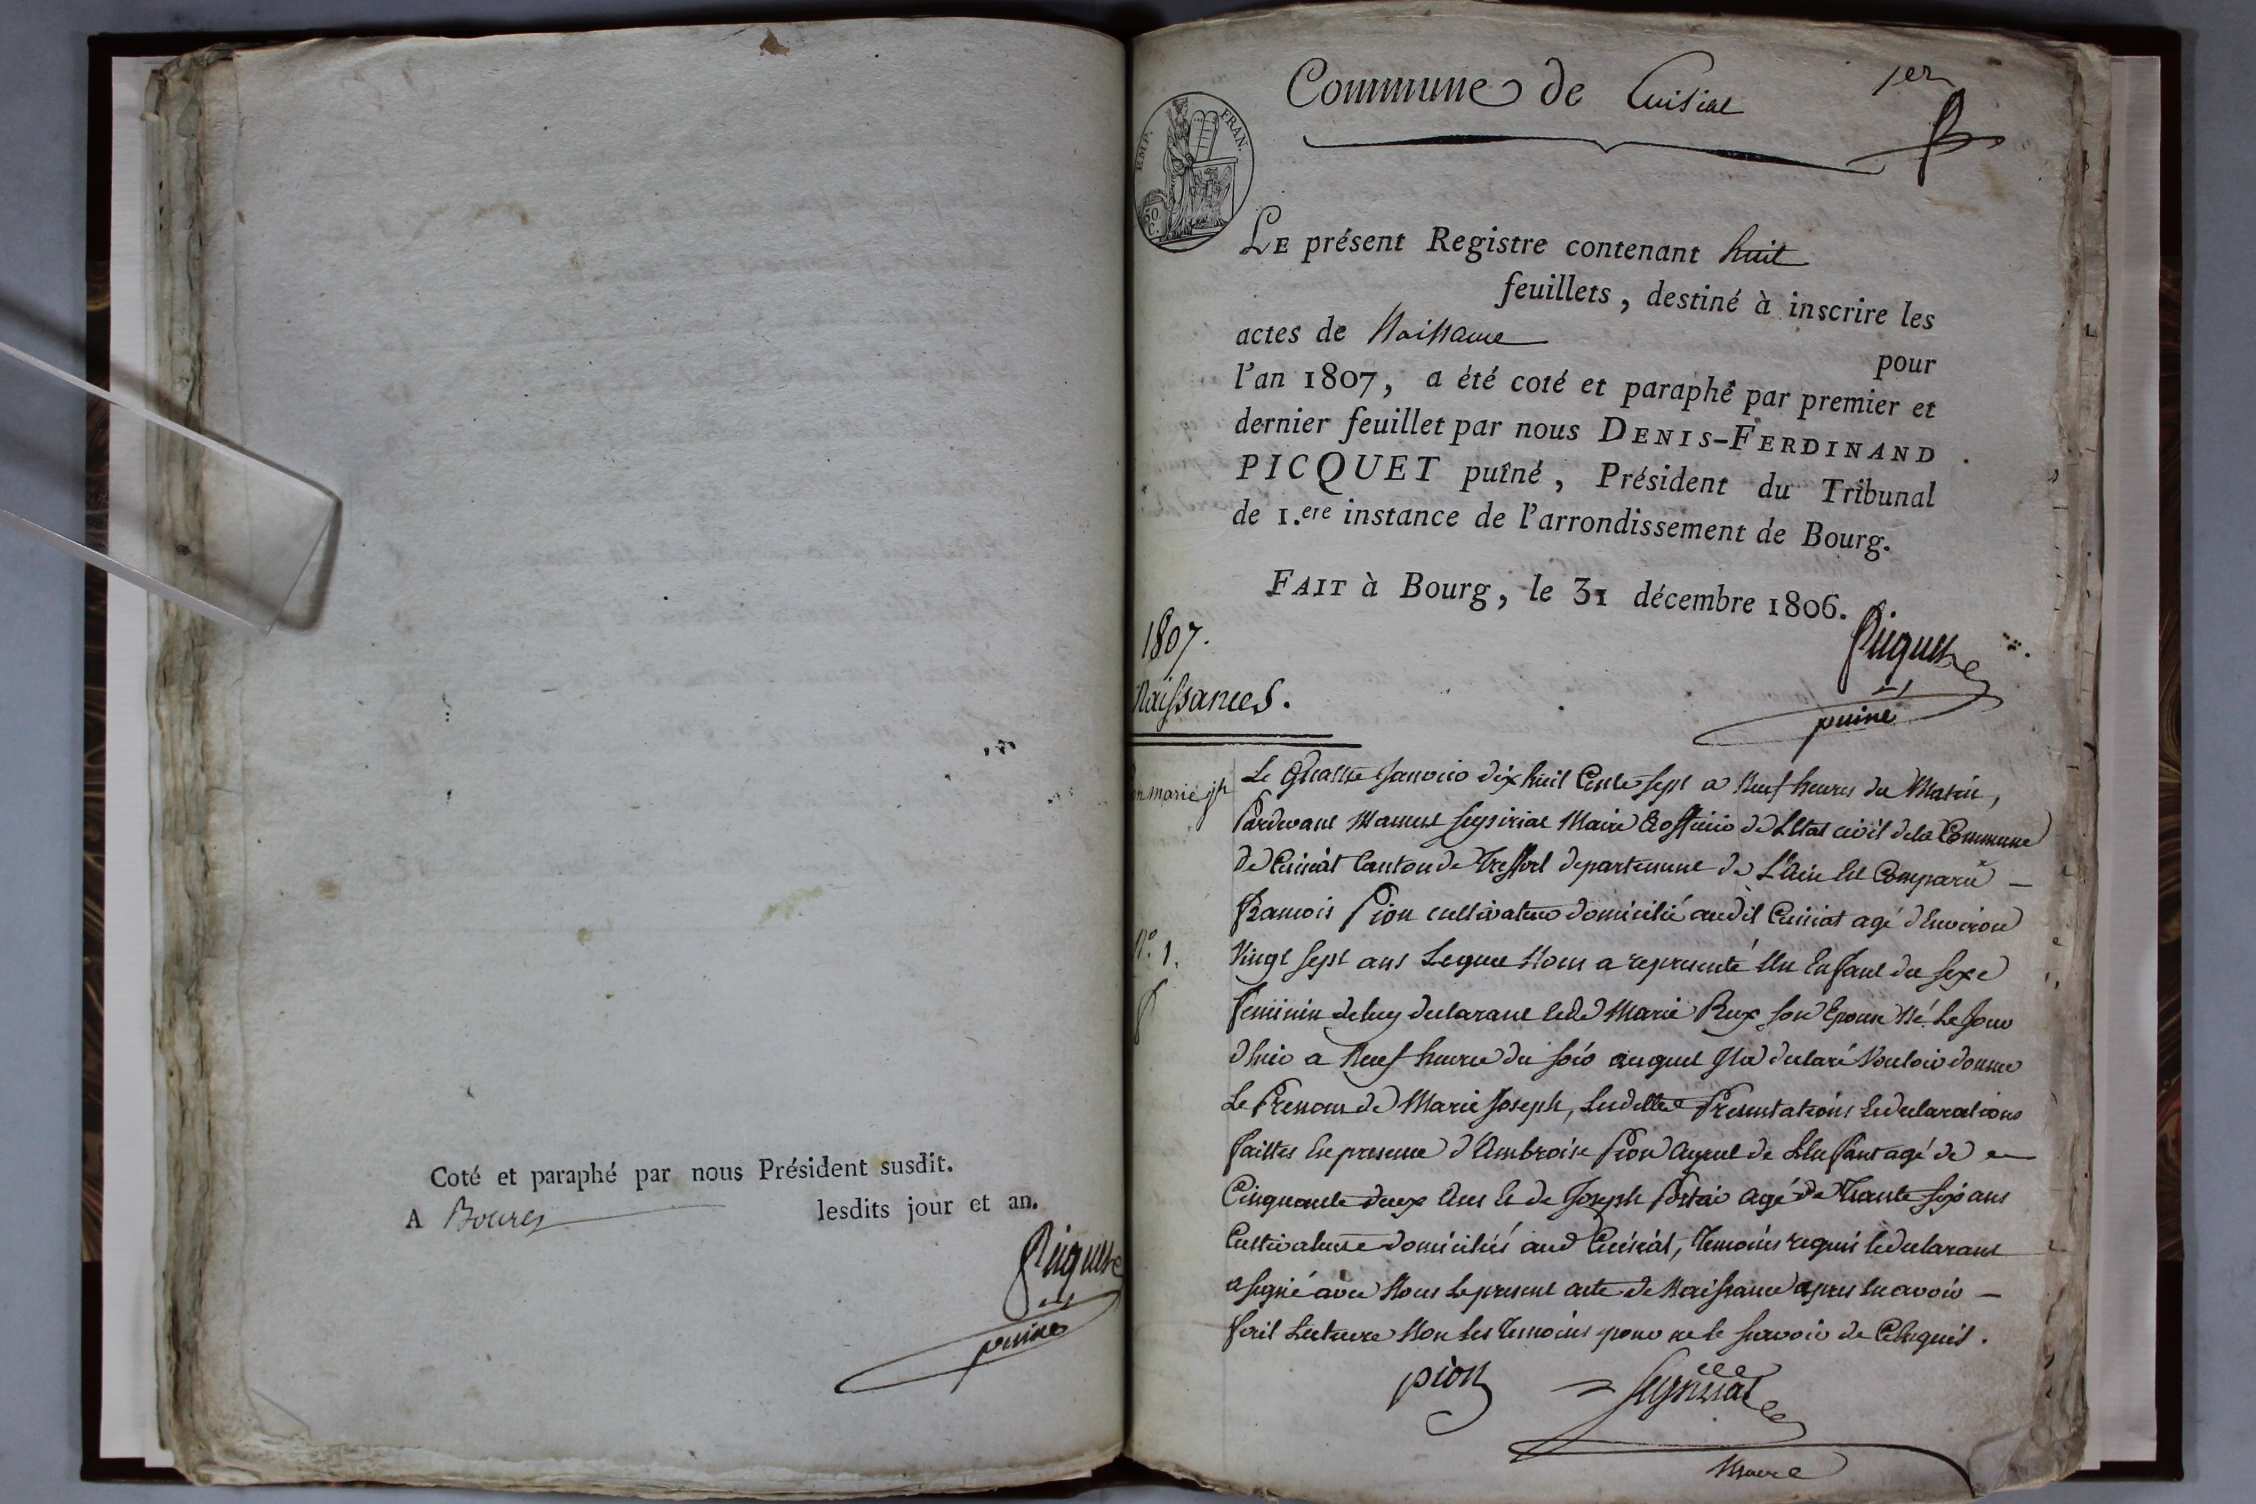 Coté et paraphé par nous Président susdit.
A Bourg lesdits jour et an.
Picquet
puiné
Commune de Cuisiat
1er
EMP. FRAN.
50 C.
LE présent Registre contenant huit
feuillets, destiné à inscrire les
actes de Naissance
pour
l'an 1807, a été coté et paraphé par premier et
dernier feuillet par nous DENIS-FERDINAND
PICQUET puîné, Président du Tribunal
de 1.ere instance de l'arrondissement de Bourg.
FAIT à Bourg, le 31 décembre 1806.
Picquet
puiné
1807.
Naissances.
marie jph
N.o 1.
Le Quatre Janvier dix huit Cent sept a Neuf heures du Matin,
Pardevant Maire & officier de L'Etat civil de la Commune
de Cuisiat Canton de Treffort departement de L'Ain Est Comparu
francois Pion cultivateur domicilié audit Cuisiat agé d'Environ
Vingt sept ans Lequel Nous a representé Un Enfant du sexe
feminin de luy declarant et de Marie Rux son Epouse Né Le Jour
d'hier a Neuf heures du soir auquel Il a declaré Vouloir donner
Le Prenom de Marie Joseph, Lesdittes Presentations et declarations
faittes En presence d'Ambroise Pion Ayeul de L'Enfant agé de
Cinquante deux Ans et de Joseph agé de Trente six ans
Cultivateurs domiciliés aud Cuisiat, Temoins requis le declarant
a signé avec Nous le present acte de Naissance apres En avoir
fait Lecture Non les Temoins pour ne le savoir de Ce Enquis.
pion
Maire